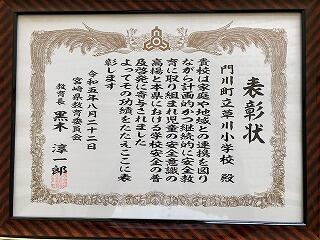 表彰状
門川町立草川小学校 殿
貴校は家庭や地域との連携を図り
ながら計画的かつ継続的に安全教
育に取り組まれ児童の安全意識の
高揚と本県における学校安全の普
及啓発に寄与されました
よってその功績をたたえここに表
彰します
令和五年八月二十二日
宮崎県教育委員会
教育長 黒木淳一郎